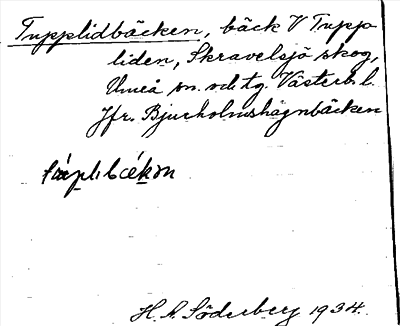 Tupplidbäcken, bäck V Tupp-
liden, Skravelsjö skog,
Umeå sn. och tg. Västerb. l.
Jfr. Bjurholmshägnbäcken
H. A. Söderberg 1934.